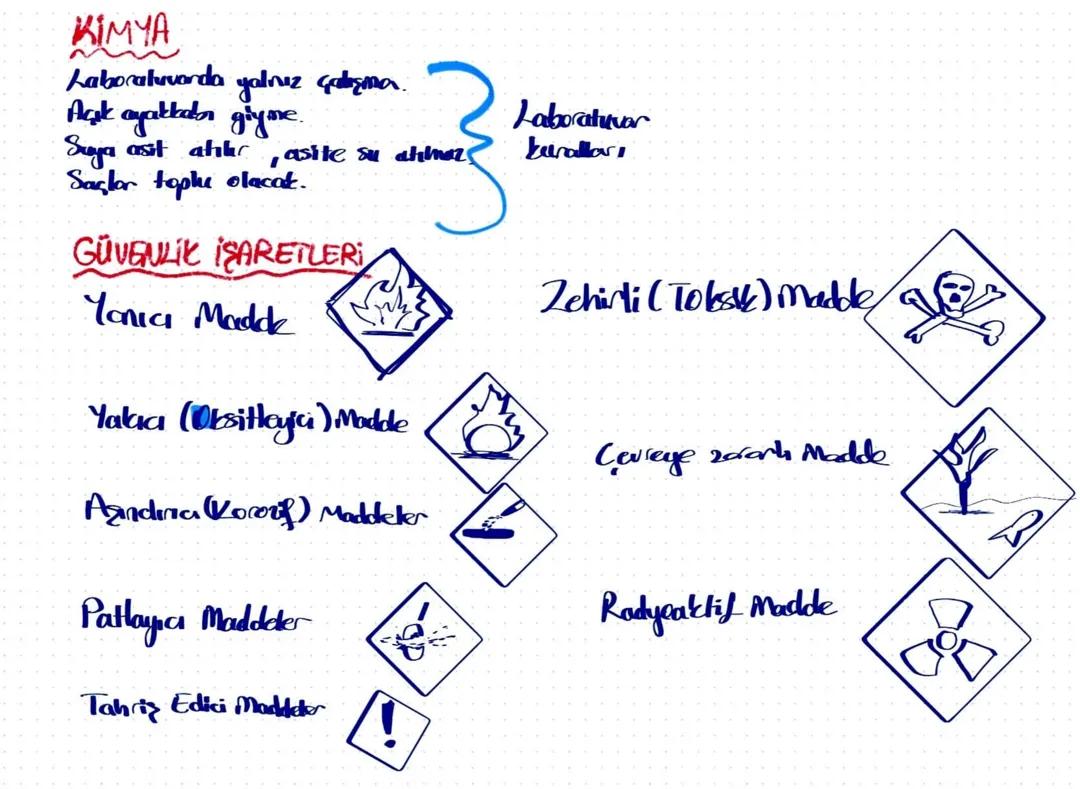 KİMYA
Laboratuvarda yalnız çalışma.
Açık ayakkabı giyme.
Suya asit atılır, asite su atılmaz.
Saçlar toplu olacak.
Laboratuvar
kuralları
GÜVENLİK İŞARETLERİ
Yanıcı Madde
Zehirli (Toksik) Madde
Yakıcı (Oksitleyici) Madde
Çevreye zararlı Madde
Aşındırıcı (Korozif) Maddeler
Patlayıcı Maddeler
Radyoaktif Madde
Tahriş Edici Maddeler
!